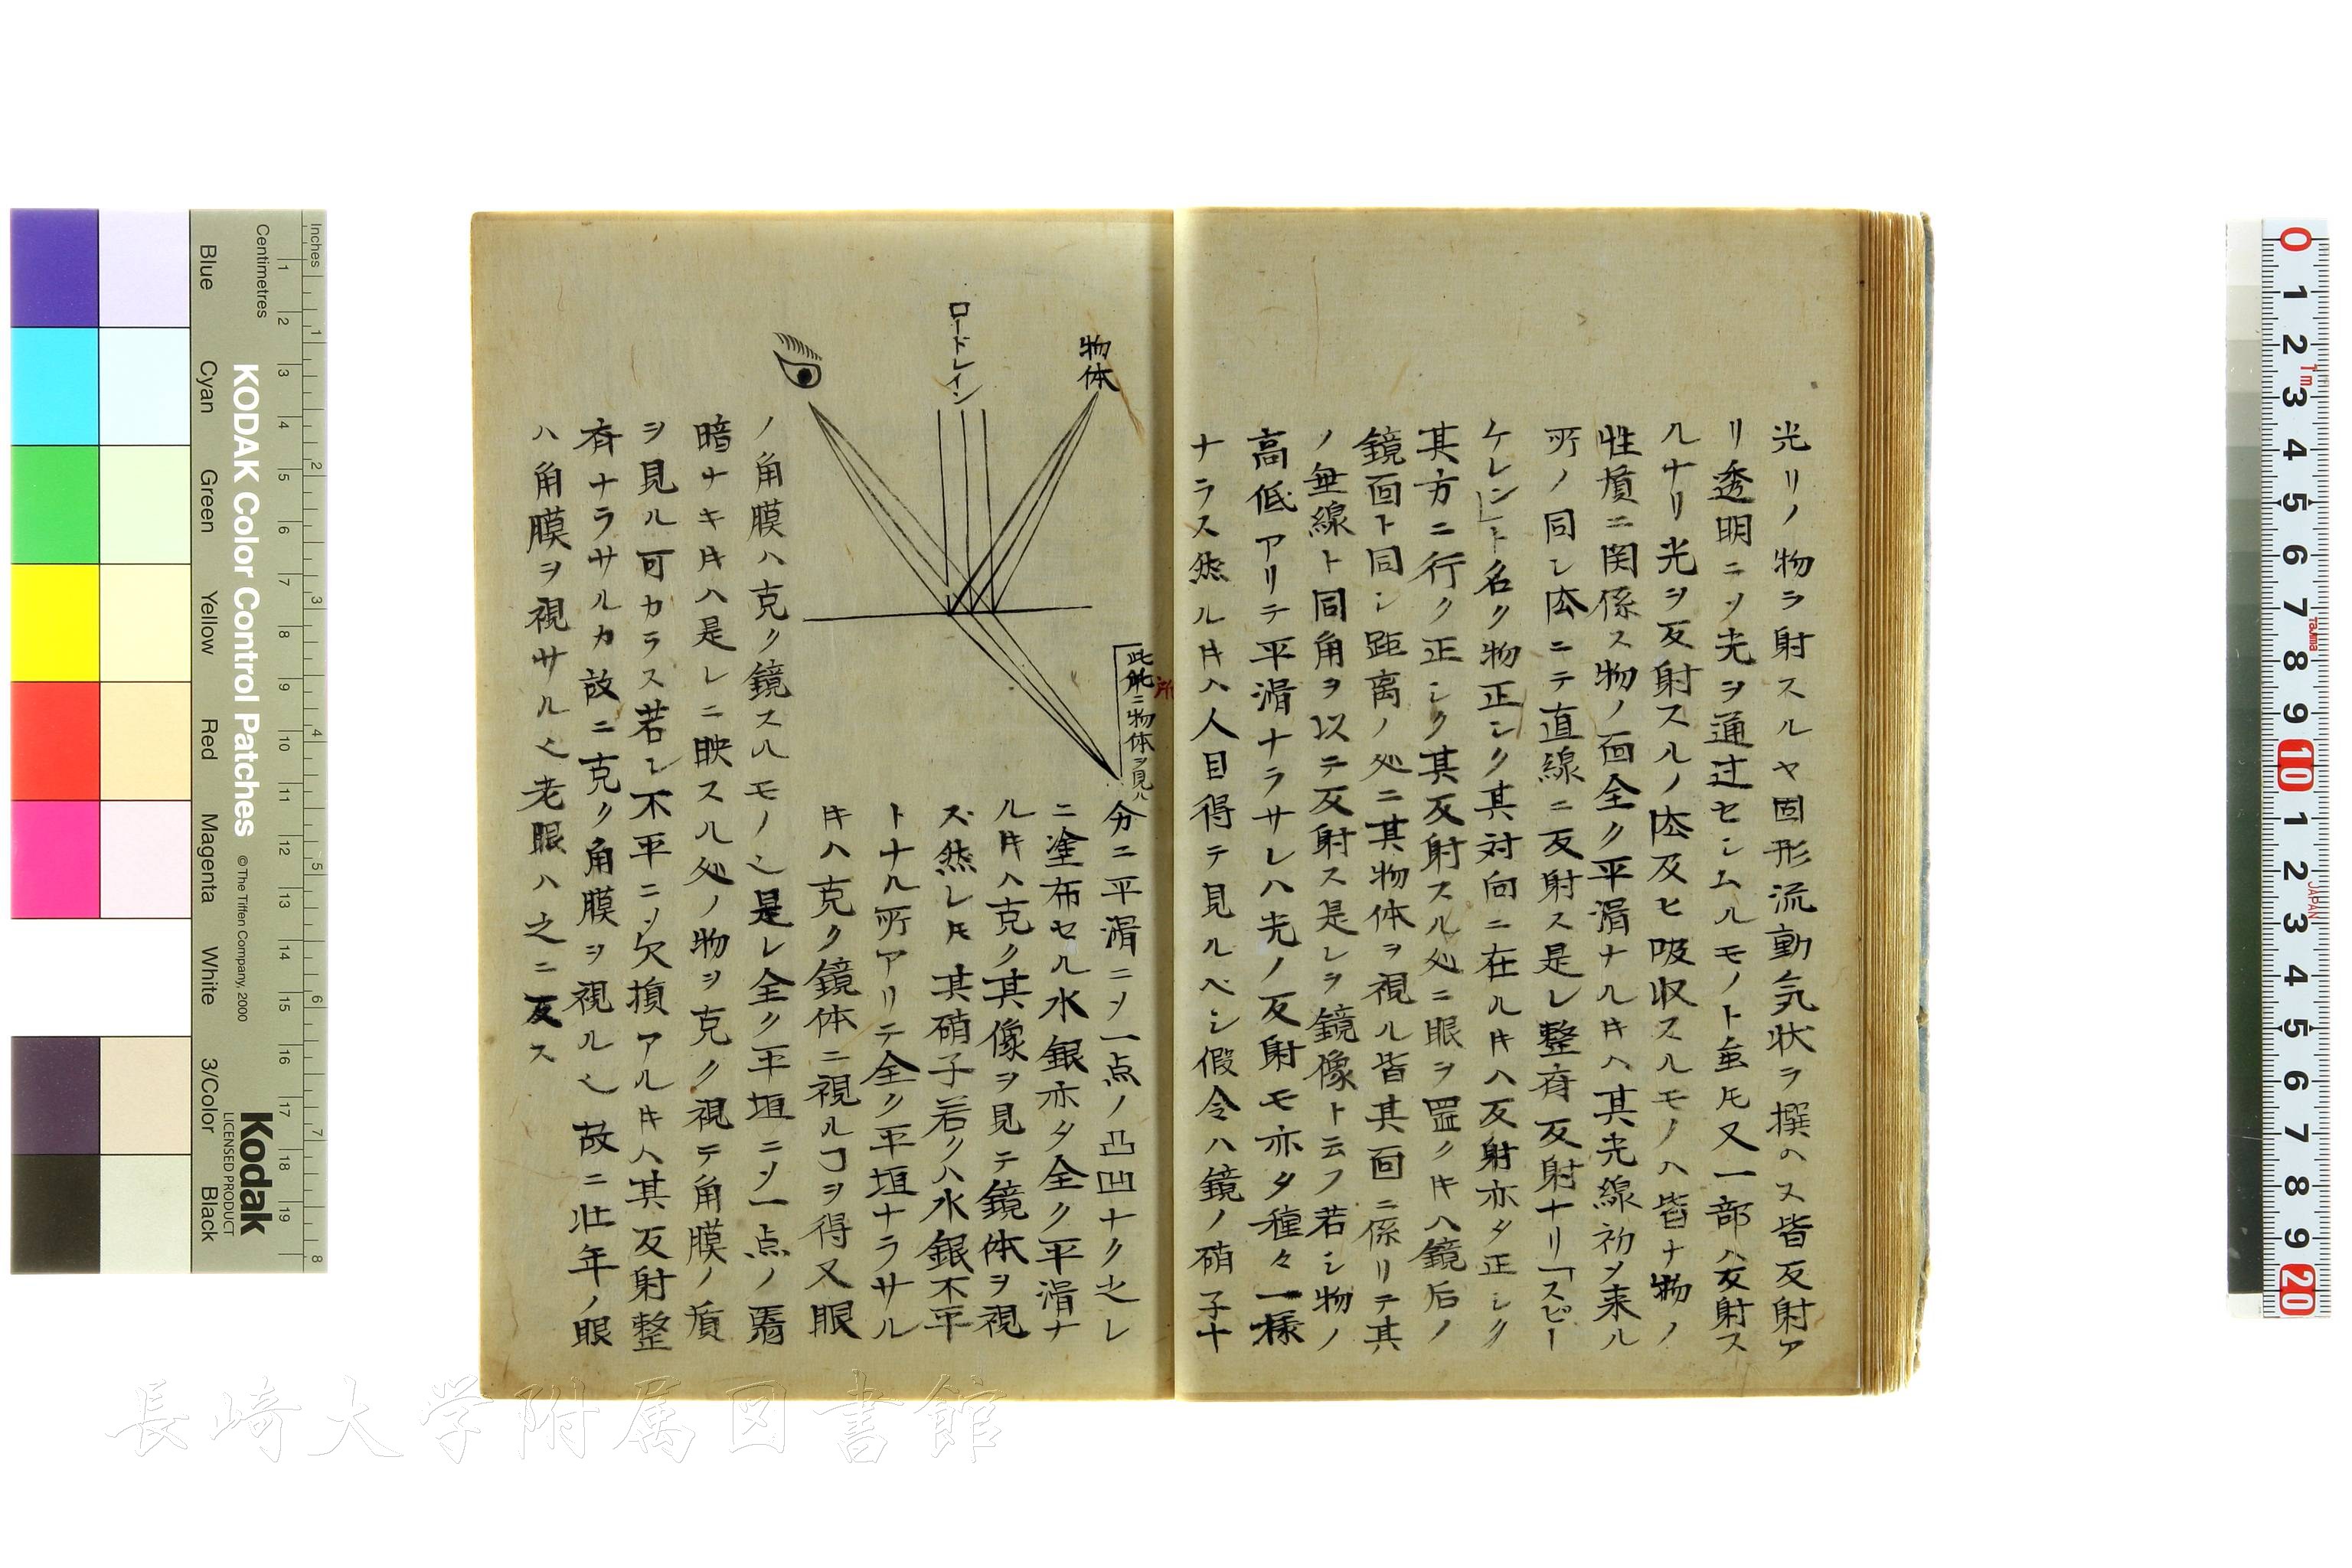 光リノ物ヲ射スルヤ固形流動気状ヲ撰ハス皆反射ア
リ透明ニソ光ヲ通过セシムルモノト虽𪜈又一部ハ反射ス
ルナリ光ヲ反射スルノ㳒及ヒ吸収スルモノハ皆ナ物ノ
性質ニ関係ス物ノ面全ク平滑ナル𪜈ハ其光線初ヲ来ル
所ノ同シ㳒ニテ直線ニ反射ス是レ整斉反射ナリ「スピー
ケレン」ト名ク物正シク其対向ニ在ル𪜈ハ反射亦タ正シク
其方ニ行ク正シク其反射スル処ニ眼ヲ置ク𪜈ハ鏡后ノ
鏡面ト同シ距离ノ処ニ其物体ヲ視ル皆其面ニ係リテ其
ノ垂線ト同角ヲ以テ反射ス是レヲ鏡像ト云フ若シ物ノ
高低アリテ平滑ナラサレハ光ノ反射モ亦タ種々一様
ナラス然ル𪜈ハ人目得テ見ルベシ假令ハ鏡ノ硝子十
物体
ロードレイン
所
此所ニ物体ヲ見ル
分ニ平滑ニソ一点ノ凸凹ナク之レ
ニ塗布セル水銀亦タ全ク平滑ナ
ル𪜈ハ克ク其像ヲ見テ鏡体ヲ視
ズ然レ𪜈其硝子若クハ水銀不平
トナル所アリテ全ク平垣ナラサル
𪜈ハ克ク鏡体ニ視ルヿヲ得又眼
ノ角膜ハ克ク鏡スルモノ也是レ全ク平垣ニソ一点ノ翳
暗ナキ𪜈ハ是レニ映スル処ノ物ヲ克ク視テ角膜ノ質
ヲ見ル可カラス若シ不平ニソ欠損アル𪜈ハ其反射整
斉ナラサルカ故ニ克ク角膜ヲ視ル也故ニ壮年ノ眼
ハ角膜ヲ視サル也老眼ハ之ニ反ス
Inches
Centimetres
KODAK Color Control Patches
© The Tiffen Company, 2000
Kodak
LICENSED PRODUCT
Blue
Cyan
Green
Yellow
Red
Magenta
White
3/Color
Black
1 2 3 4 5 6 7 8 9 10 11 12 13 14 15 16 17 18 19
1 2 3 4 5 6 7 8
0 1 2 3 4 5 6 7 8 9 10 1 2 3 4 5 6 7 8 9 20
1m
Tajima
JAPAN
長崎大学附属図書館